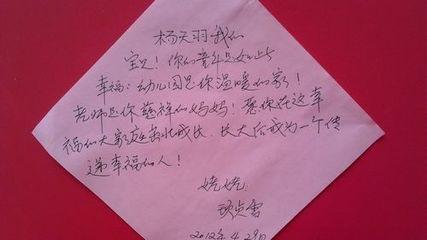 杨天羽我的
宝贝！你的童年是如此
幸福：幼儿园是你温暖的家！
老师是你慈祥的妈妈！愿你在这幸
福的大家庭茁壮成长，长大后成为一个传
递幸福的人！
姥姥
贞雪
2012年4.29日